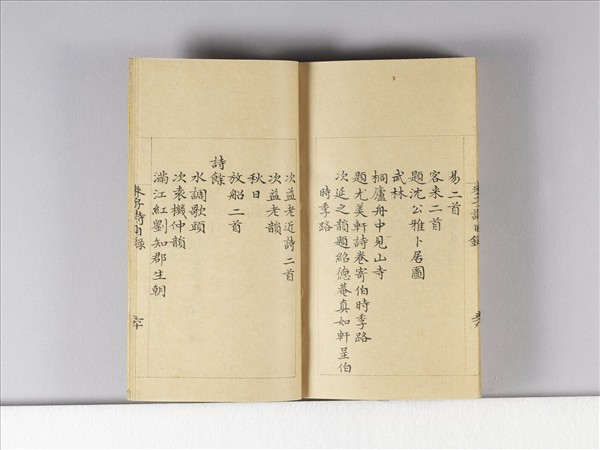 易二首
客来二首
題沈公雅卜居圖
武林
桐廬舟中見山寺
題尤美軒詩卷寄伯時季路
次延之韻題紹德菴真如軒呈伯
時季路
次益老近詩二首
次益老韻
秋日
放船二首
詩餘
水調歌頭
次袁機仲韻
滿江紅劉知郡生朝
朱子詩目錄